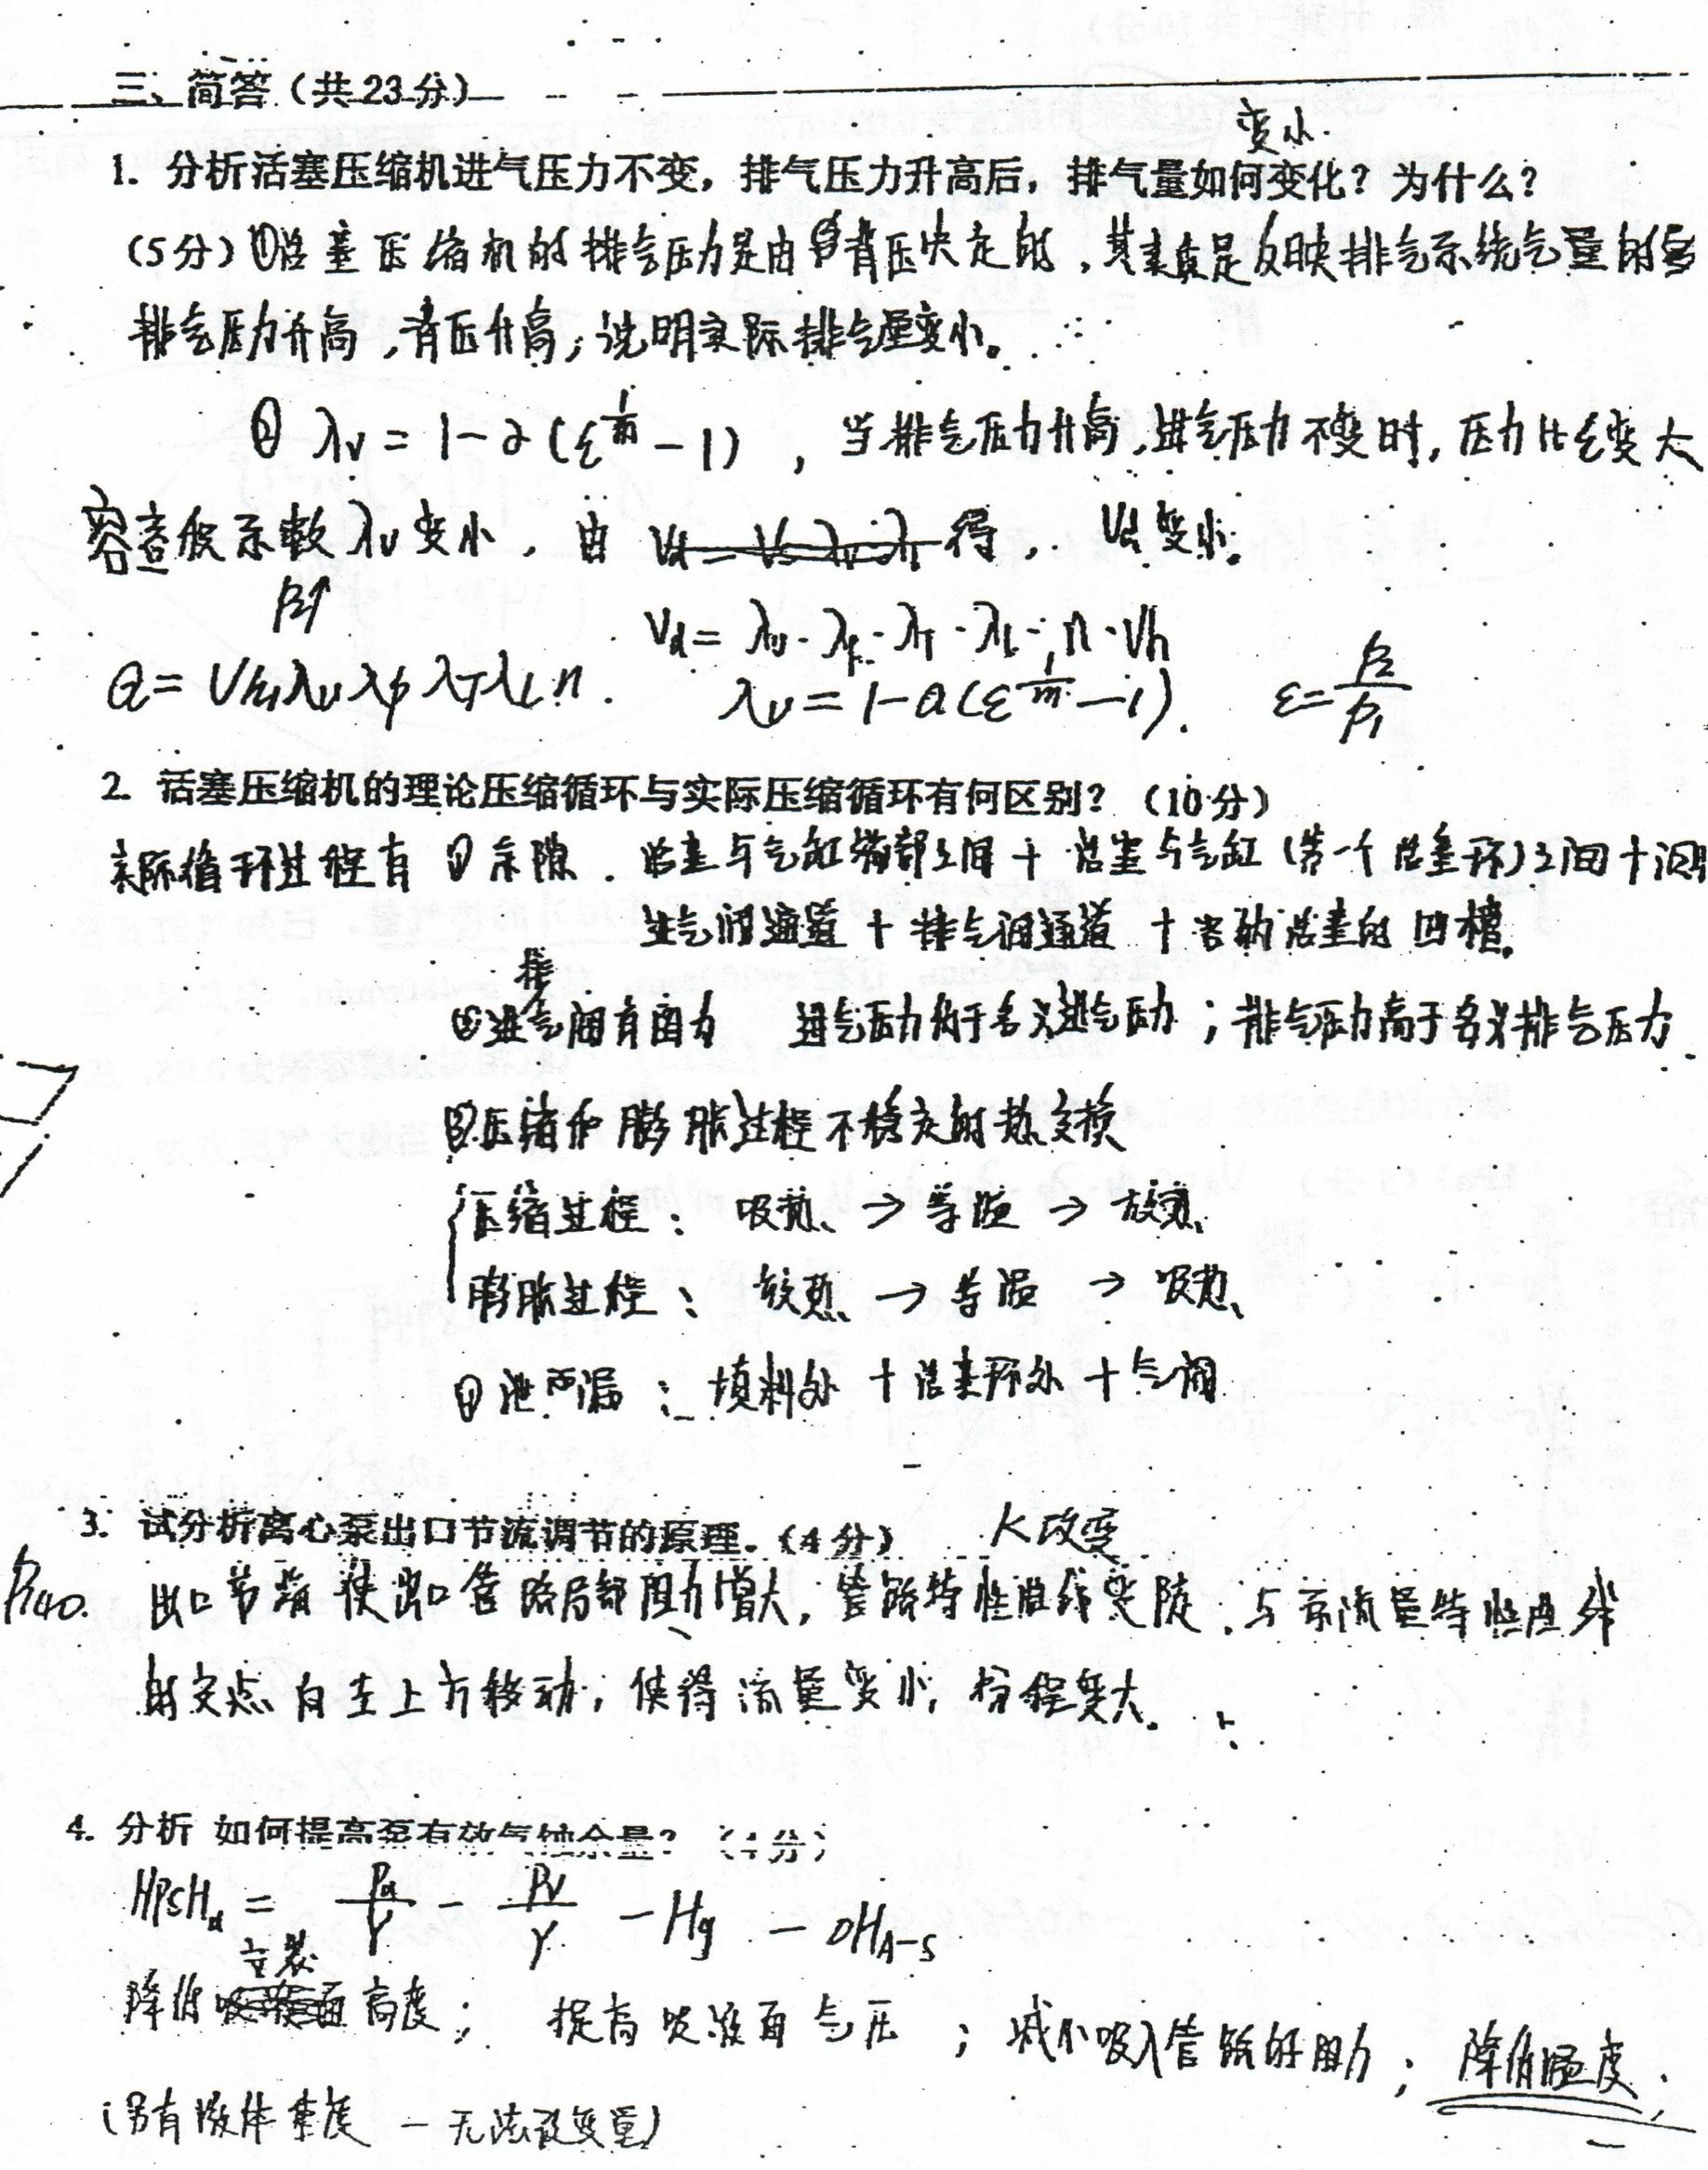 三、简答（共23分）
变小.
1. 分析活塞压缩机进气压力不变，排气压力升高后，排气量如何变化？为什么？
(5分) ①活塞压缩机的排气压力是由背压决定的，其实质是反映排气系统气量的
排气压力升高，背压升高，说明实际排气量变小。
② λv = 1-a(ε^{1/m} -1) ，当排气压力升高，进气压力不变时，压力比ε变大
容积系数λv变小，由 得，Vd变小。
P2↑
Vd = λv·λp·λT·λl·n·Vh
Q = Vh λv λp λT λL n. λv = 1-a(ε^{1/m}-1). ε=P2/P1
2. 活塞压缩机的理论压缩循环与实际压缩循环有何区别？（10分）
实际循环过程有 ①余隙. 活塞与气缸端部之间 + 活塞与气缸(第一个活塞环)之间 +
进气阀通道 + 排气阀通道 + 活塞的凹槽.
排
②进气阀有阻力 进气压力低于名义进气压力；排气压力高于名义排气压力
③压缩和膨胀过程不稳定的热交换
压缩过程： 吸热 → 等温 → 放热
膨胀过程： 放热 → 等温 → 吸热
④泄漏： 填料处 + 活塞环处 + 气阀
3. 试分析离心泵出口节流调节的原理。（4分） K改变
P140. 出口节流使出口管路局部阻力增大，管路特性曲线变陡，与泵流量特性曲线
的交点向左上方移动，使得流量变小，扬程变大。
4. 分析 如何提高泵有效气蚀余量？（4分）
NPSHa = Pa/γ - Pv/γ - Hg - ΔHA-S
安装
降低高度； 提高吸液面气压； 减小吸入管路的阻力； 降低温度.
(另有液体重度 - 无法改变量)